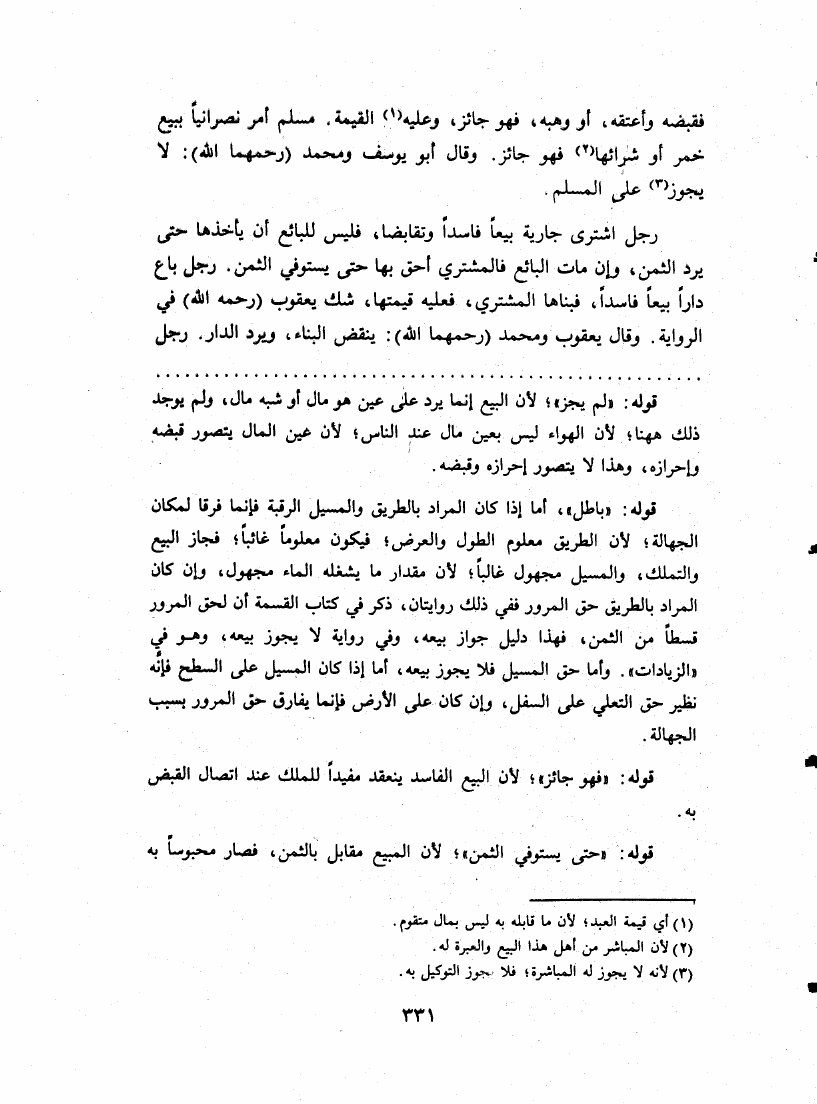 فقبضه وأعتقه، أو وهبه، فهو جائز، وعليه(١) القيمة. مسلم أمر نصرانياً ببيع
خمر أو شرائها(٢) فهو جائز. وقال أبو يوسف ومحمد (رحمهما الله): لا
يجوز(٣) على المسلم.
رجل اشترى جارية بيعاً فاسداً وتقابضا، فليس للبائع أن يأخذها حتى
يرد الثمن، وإن مات البائع فالمشتري أحق بها حتى يستوفي الثمن. رجل باع
داراً بيعاً فاسداً، فبناها المشتري، فعليه قيمتها، شك يعقوب (رحمه الله) في
الرواية. وقال يعقوب ومحمد (رحمهما الله): ينقض البناء، ويرد الدار. رجل
قوله: «لم يجز»؛ لأن البيع إنما يرد على عين هو مال أو شبه مال، ولم يوجد
ذلك ههنا؛ لأن الهواء ليس بعين مال عند الناس؛ لأن عين المال يتصور قبضه
وإحرازه، وهذا لا يتصور إحرازه وقبضه.
قوله: «باطل»، أما إذا كان المراد بالطريق والمسيل الرقبة فإنما فرقا لمكان
الجهالة؛ لأن الطريق معلوم الطول والعرض؛ فيكون معلوماً غائباً؛ فجاز البيع
والتملك، والمسيل مجهول غالباً؛ لأن مقدار ما يشغله الماء مجهول، وإن كان
المراد بالطريق حق المرور ففي ذلك روايتان، ذكر في كتاب القسمة أن لحق المرور
قسطاً من الثمن، فهذا دليل جواز بيعه، وفي رواية لا يجوز بيعه، وهو في
«الزيادات». وأما حق المسيل فلا يجوز بيعه، أما إذا كان المسيل على السطح فإنّه
نظير حق التعلي على السفل، وإن كان على الأرض فإنما يفارق حق المرور بسبب
الجهالة.
قوله: «فهو جائز»؛ لأن البيع الفاسد ينعقد مفيداً للملك عند اتصال القبض
به.
قوله: «حتى يستوفي الثمن»؛ لأن المبيع مقابل بالثمن، فصار محبوساً به
(١) أي قيمة العبد؛ لأن ما قابله به ليس بمال متقوم.
(٢) لأن المباشر من أهل هذا البيع والعبرة له.
(٣) لأنه لا يجوز له المباشرة؛ فلا يجوز التوكيل به.
٣٣١